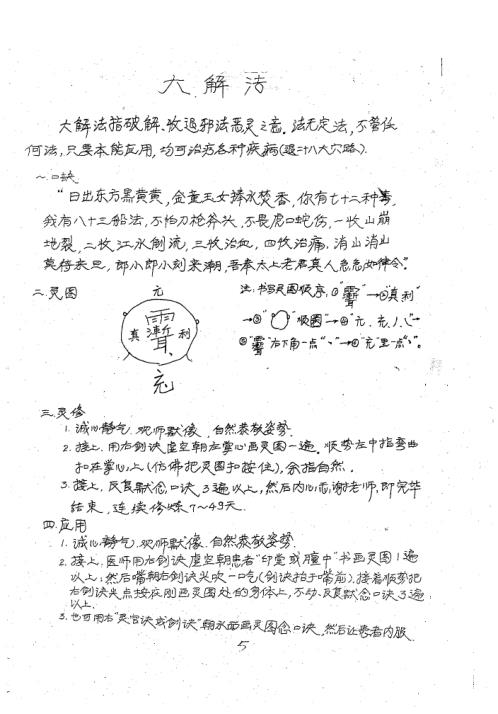 大解法
大解法指破解、收退邪法恶灵之意。法无定法，不管任
何法，只要本能应用，均可治疗各种疾病(退二十八大穴略)。
一.口诀
“日出东方黄黄黄，金童玉女捧水焚香，你有七十二种
我有八十三船法，不怕刀枪斧头，不畏虎口蛇伤，一收山崩
地裂，二收江水倒流，三收治血，四收治痛，消山消山
莫将来旦，郎小郎小刻来潮，吾奉太上老君真人急急如律令。”
二.灵图
元
真 利
充
注:书写灵图顺序:①“ ”→②“真利”
→③“ ”顺圈”→④“元.充.八”→
⑤“ 右下角一点“丶”→⑥“充”里一点“丶”。
三.灵修
1.诚心静气.观师默像.自然恭敬姿势.
2.接上.用右剑诀虚空朝左掌心画灵图一遍.顺势左中指弯曲
扣在掌心上(仿佛把灵图扣按住),余指自然.
3.接上,反复默念口诀3遍以上,然后内心恋谢老师,即完毕
结束,连续修炼7～49天.
四.应用
1.诚心静气.观师默像.自然恭敬姿势.
2.接上,医师用右剑诀虚空朝患者“印堂或膻中”书画灵图1遍
以上;然后嘴朝右剑诀尖吹一口气(剑诀抬于嘴前).接着顺势把
右剑诀尖点按在刚画灵图处的身体上,不动.反复默念口诀3遍
以上.
3.也可用右“灵官诀或剑诀”朝水面画灵图念口诀.然后让患者内服
5